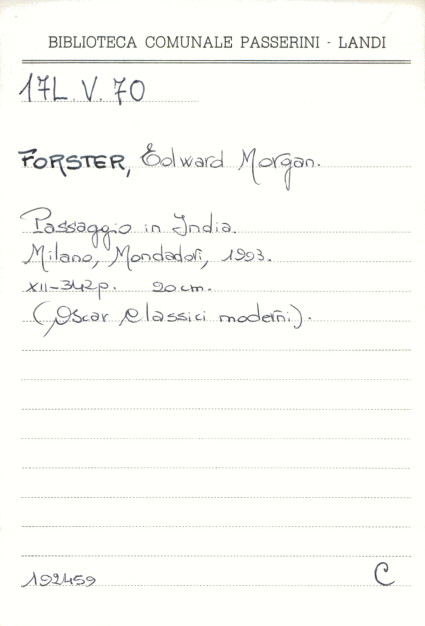 BIBLIOTECA COMUNALE PASSERINI - LANDI
17L.V.70
FORSTER, Edward Morgan.
Passaggio in India.
Milano, Mondadori, 1993.
XII-342p. 20cm.
(Oscar Classici moderni).
192459 C